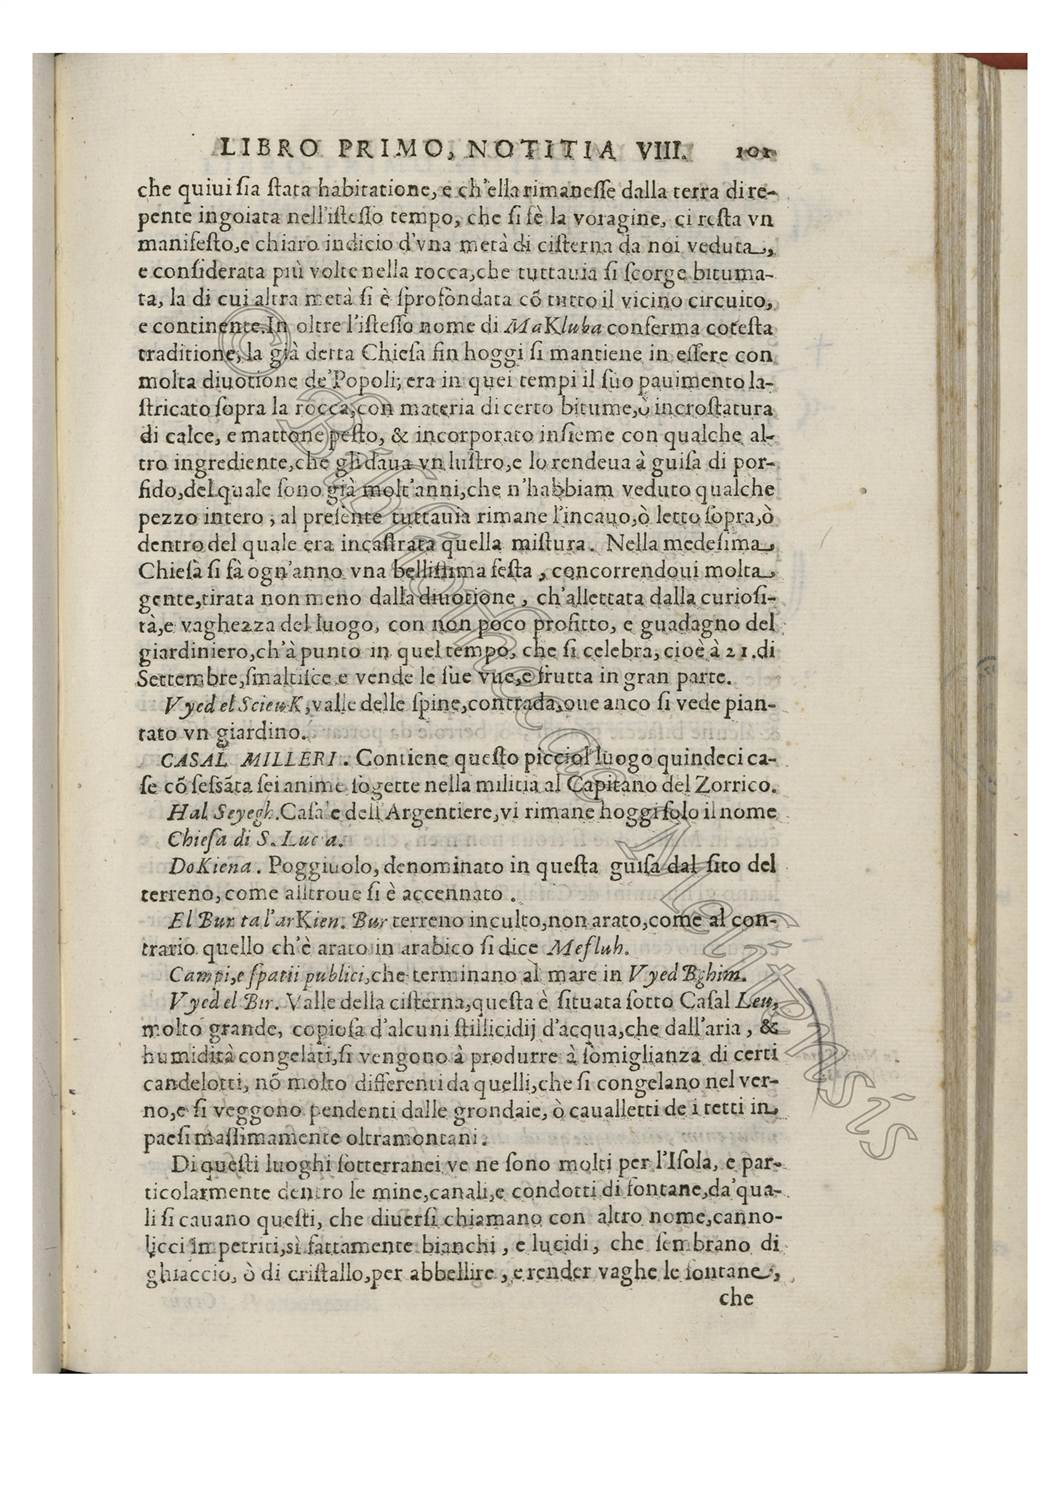 LIBRO PRIMO, NOTITIA VIII. 101
che quiui ſia ſtata habitatione, e ch'ella rimaneſſe dalla terra di re-
pente ingoiata nell'iſteſſo tempo, che ſi fè la voragine, ci reſta vn
manifeſto, e chiaro indicio d'vna metà di ciſterna da noi veduta,
e conſiderata più volte nella rocca, che tuttauia ſi ſcorge bituma-
ta, la di cui altra metà ſi è ſprofondata cõ tutto il vicino circuito,
e continente. In oltre l'iſteſſo nome di MaKluba conferma coteſta
traditione, la già detta Chieſa fin hoggi ſi mantiene in eſſere con
molta diuotione de' Popoli; era in quei tempi il ſuo pauimento la-
ſtricato ſopra la rocca, con materia di certo bitume, ò incroſtatura
di calce, e mattone peſto, & incorporato inſieme con qualche al-
tro ingrediente, che gli daua vn luſtro, e lo rendeua à guiſa di por-
fido, del quale ſono già molt'anni, che n'habbiam veduto qualche
pezzo intero; al preſente tuttauia rimane l'incauo, ò letto ſopra, ò
dentro del quale era incaſtrata quella miſtura. Nella medeſima
Chieſa ſi fà ogn'anno vna belliſſima feſta, concorrendoui molta
gente, tirata non meno dalla diuotione, ch'allettata dalla curioſi-
tà, e vaghezza del luogo, con non poco profitto, e guadagno del
giardiniero, ch'à punto in quel tempo, che ſi celebra, cioè à 21. di
Settembre, ſmaltiſce e vende le ſue vue, e frutta in gran parte.
Vyed el ScieuK, valle delle ſpine, contrada, oue anco ſi vede pian-
tato vn giardino.
CASAL MILLERI. Contiene queſto picciol luogo quindeci ca-
ſe cõ ſeſsãta ſei anime ſogette nella militia al Capitano del Zorrico.
Hal Seyegh. Caſale dell'Argentiere, vi rimane hoggi ſolo il nome
Chieſa di S. Luca.
DoKiena. Poggiuolo, denominato in queſta guiſa dal ſito del
terreno, come alltroue ſi è accennato.
El Bur ta l'arKien. Bur terreno inculto, non arato, come al con-
trario quello ch'è arato in arabico ſi dice Mefluh.
Campi, e ſpatii publici, che terminano al mare in Vyed Bghim.
Vyed el Bir. Valle della ciſterna, queſta è ſituata ſotto Caſal Leu,
molto grande, copioſa d'alcuni ſtillicidij d'acqua, che dall'aria, &
humidità congelati, ſi vengono à produrre à ſomiglianza di certi
candelotti, nõ molto differenti da quelli, che ſi congelano nel ver-
no, e ſi veggono pendenti dalle grondaie, ò caualletti de i tetti in
paeſi maſſimamente oltramontani.
Di queſti luoghi ſotterranei ve ne ſono molti per l'Iſola, e par-
ticolarmente dentro le mine, canali, e condotti di fontane, da' qua-
li ſi cauano queſti, che diuerſi chiamano con altro nome, canno-
licci impetriti, sì fattamente bianchi, e lucidi, che ſembrano di
ghiaccio, ò di criſtallo, per abbellire, e render vaghe le fontane,
che
© Bibliotheca Melitensis